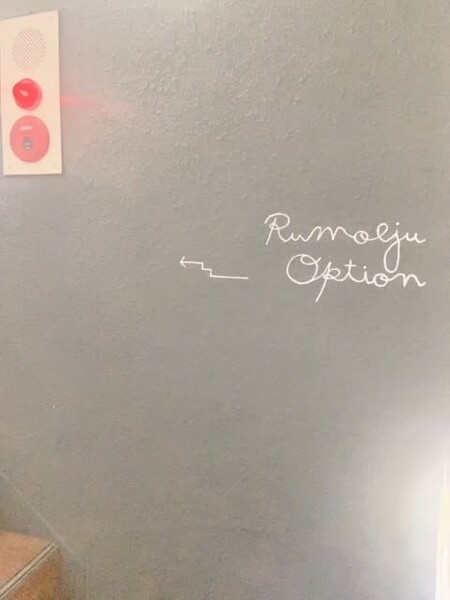 Rumolju
Option